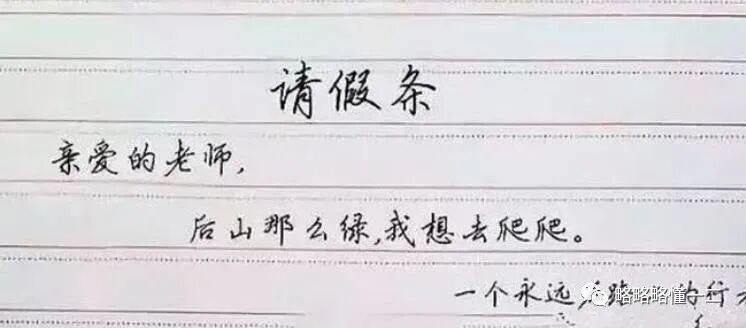 请假条
亲爱的老师，
后山那么绿，我想去爬爬。
一个永远
略略略懂一二